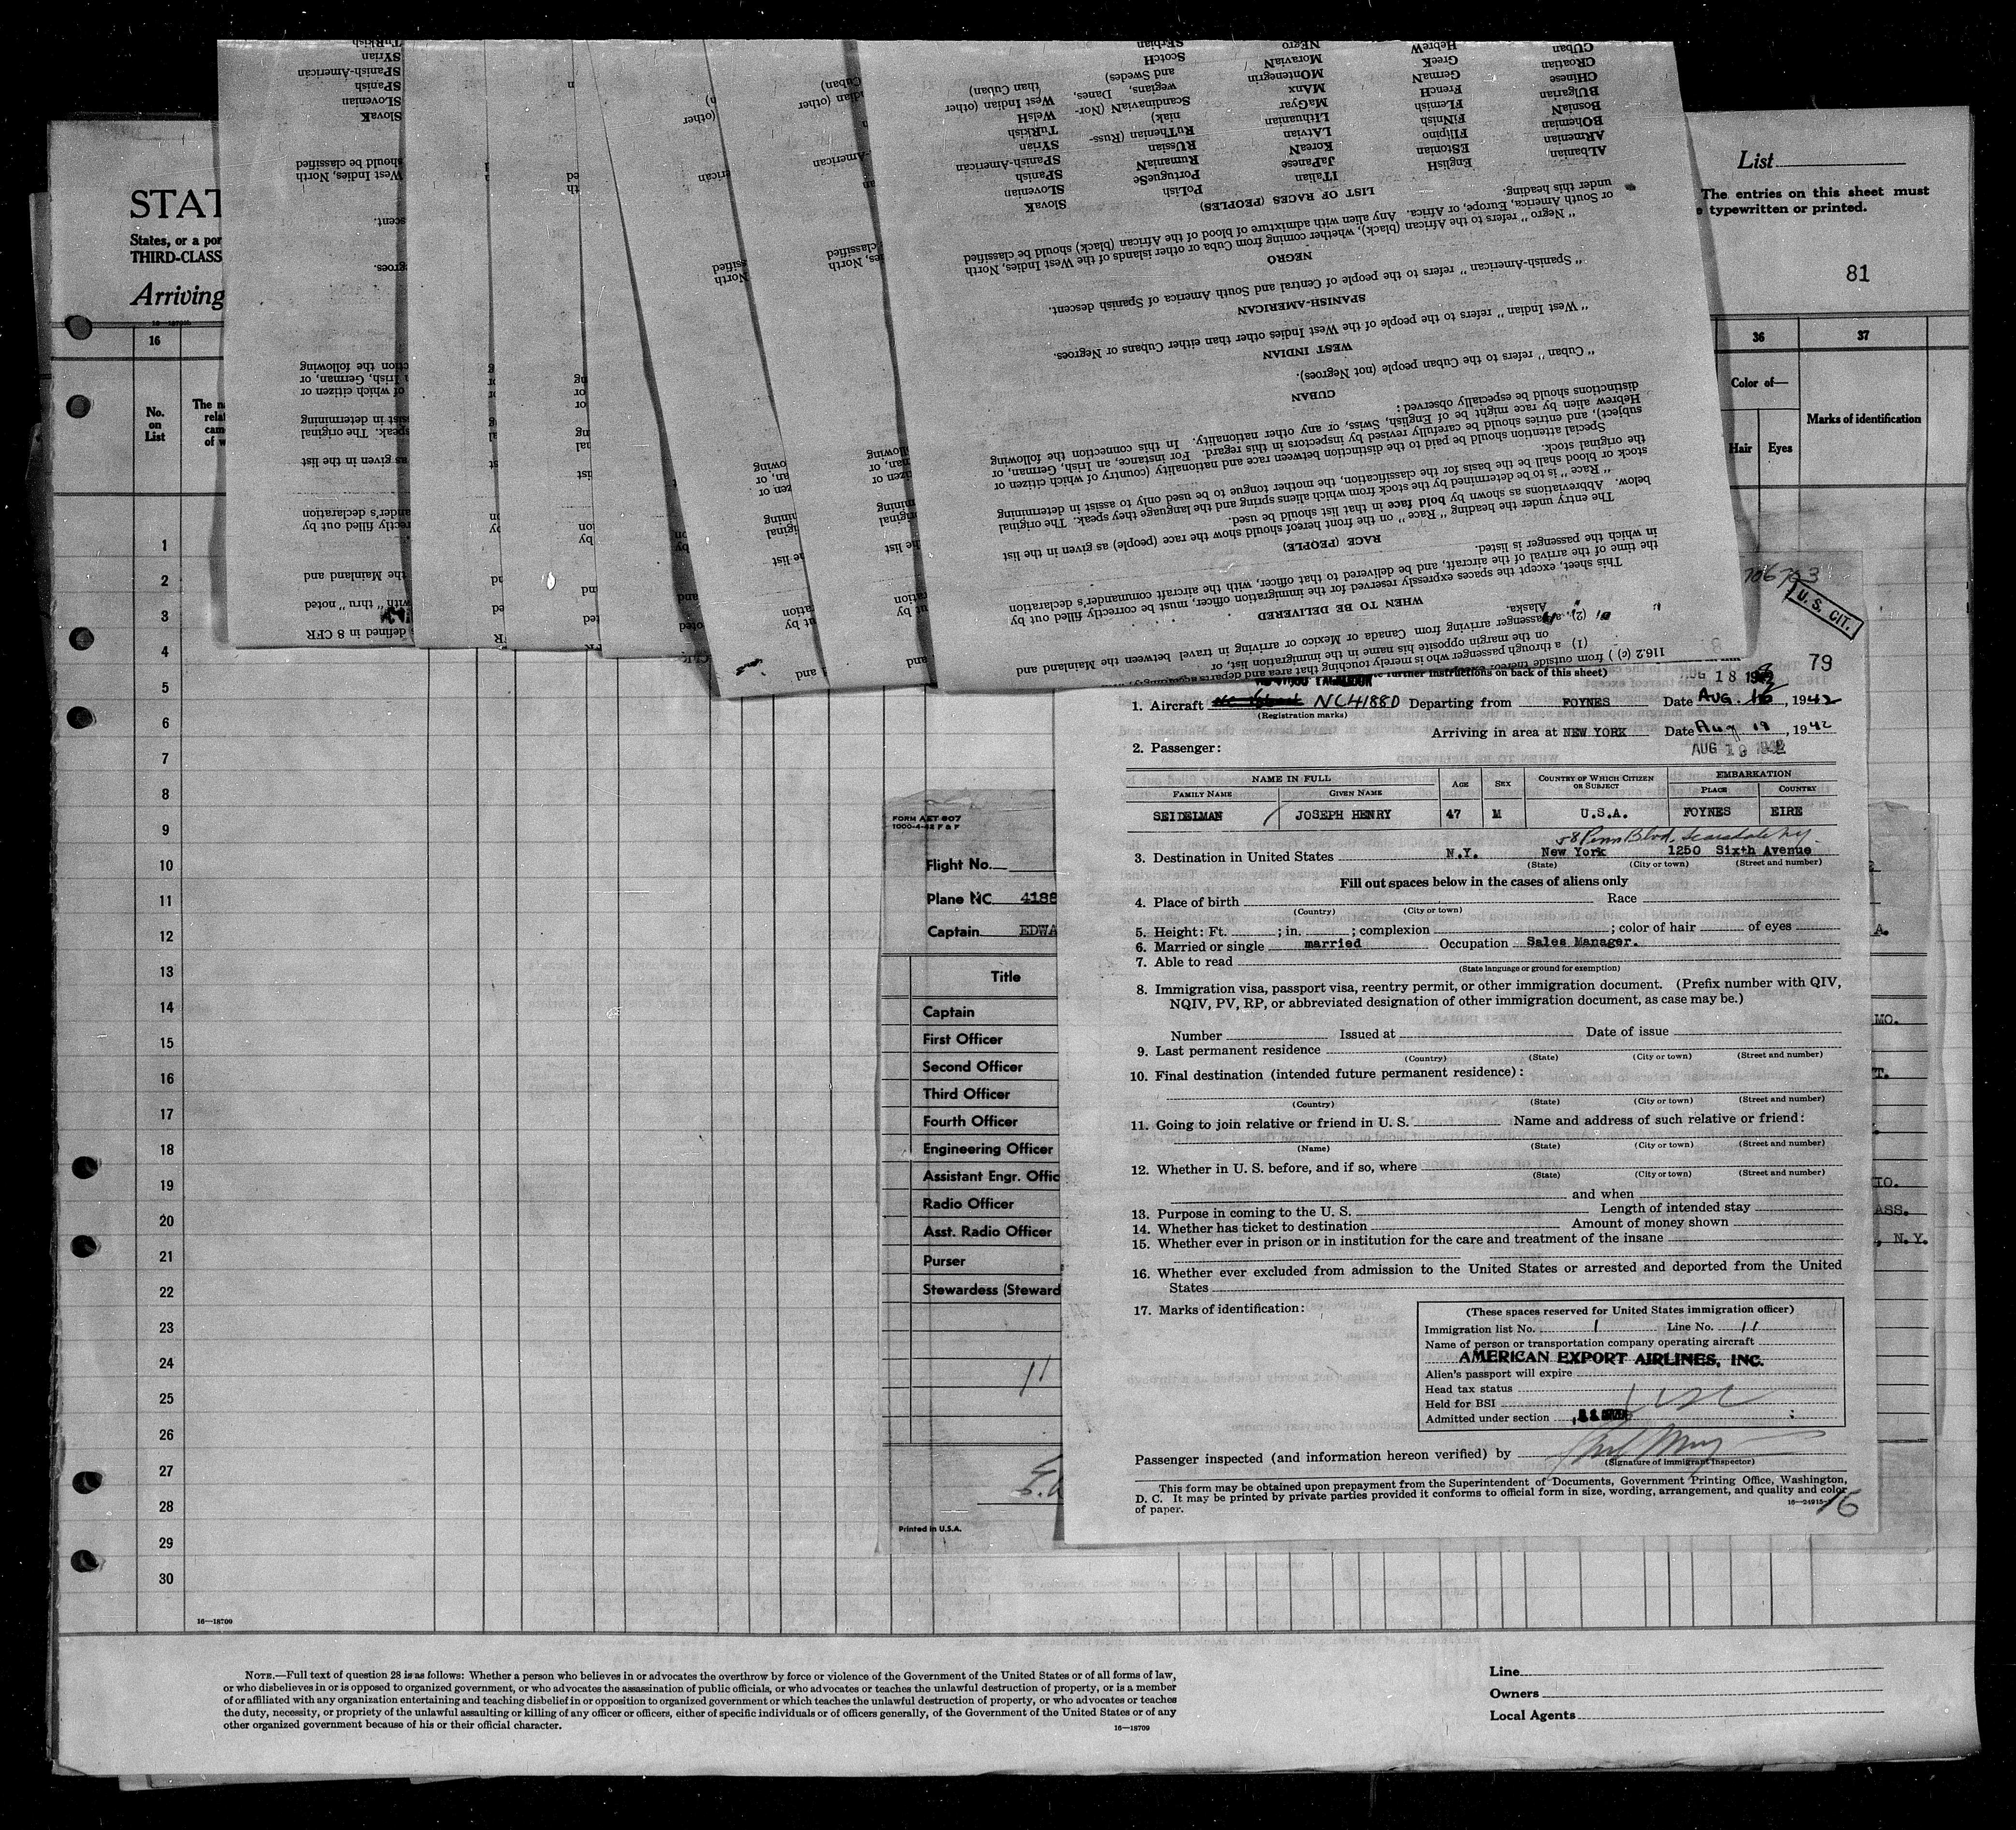 STAT
States, or a por
THIRD-CLASS
Arriving
List
The entries on this sheet must
typewritten or printed.
81
16
36
37
No.
on
List
Color of—
Hair
Eyes
Marks of identification
1
2
3
4
5
6
7
8
9
10
11
12
13
14
15
16
17
18
19
20
21
22
23
24
25
26
27
28
29
30
16—18709
SlovaK
SLovenian
SPanish
SPanish-American
SYrian
TuRkish
116.2 (c) ) from outside thereof
(1) a through passenger who is merely touching that area and departs
on the margin opposite his name in the immigration list, or
(2) a passenger arriving from Canada or Mexico or arriving in travel between the Mainland and
Alaska.
WHEN TO BE DELIVERED
This sheet, except the spaces expressly reserved for the immigration officer, must be correctly filled out by
the time of the arrival of the aircraft, and be delivered to that officer, with the aircraft commander's declaration
in which the passenger is listed.
RACE (PEOPLE)
The entry under the heading "Race" on the front hereof should show the race (people) as given in the list
below. Abbreviations as shown by bold face in that list should be used.
"Race" is to be determined by the stock from which aliens spring and the language they speak. The original
stock or blood shall be the basis for the classification, the mother tongue to be used only to assist in determining
the original stock.
Special attention should be paid to the distinction between race and nationality (country of which citizen or
subject), and entries should be carefully revised by inspectors in this regard. For instance, an Irish, German, or
Hebrew alien by race might be of English, Swiss, or any other nationality. In this connection the following
distinctions should be especially observed:
CUBAN
"Cuban" refers to the Cuban people (not Negroes).
WEST INDIAN
"West Indian" refers to the people of the West Indies other than either Cubans or Negroes.
SPANISH-AMERICAN
"Spanish-American" refers to the people of Central and South America of Spanish descent.
NEGRO
"Negro" refers to the African (black), whether coming from Cuba or other islands of the West Indies, North
or South America, Europe, or Africa. Any alien with admixture of blood of the African (black) should be classified
under this heading.
LIST OF RACES (PEOPLES)
ALbanian EnglisH ITalian PoLish SlovaK
ARmenian EStonian JaPanese PortugueSe SLovenian
BOhemian FIlipino KoreaN RumaniaN SPanish
BosniaN FiNnish LAtvian RUssian SPanish-American
BUlgarian FLemish LIthuanian RuThenian (Russ- SYrian
CHinese FrencH MaGyar niak) TuRkish
CRoatian GermaN MAnx ScandinaviaN (Nor- WelsH
CUban GreeK MOntenegrin wegians, Danes, West Indian (other
HebreW MoraviaN and Swedes) than Cuban)
NEgro ScotcH
SErbian
706763
U. S. CIT.
79
AUG 18 1942
further instructions on back of this sheet)
1. Aircraft NC41880 Departing from FOYNES Date Aug. 18, 1942
(Registration marks)
Arriving in area at NEW YORK Date Aug 19, 1942
AUG 19 1942
2. Passenger:
NAME IN FULL
FAMILY NAME GIVEN NAME
AGE SEX COUNTRY OF WHICH CITIZEN OR SUBJECT
EMBARKATION
PLACE COUNTRY
SEIDELMAN JOSEPH HENRY 47 M U.S.A. FOYNES EIRE
58 Penn Blvd, Scarsdale NY
3. Destination in United States N.Y. New York 1250 Sixth Avenue
(State) (City or town) (Street and number)
Fill out spaces below in the cases of aliens only
4. Place of birth Race
(Country) (City or town)
5. Height: Ft. ; in. ; complexion ; color of hair of eyes
6. Married or single married Occupation Sales Manager.
7. Able to read
(State language or ground for exemption)
8. Immigration visa, passport visa, reentry permit, or other immigration document. (Prefix number with QIV,
NQIV, PV, RP, or abbreviated designation of other immigration document, as case may be.)
Number Issued at Date of issue
9. Last permanent residence
(Country) (State) (City or town) (Street and number)
10. Final destination (intended future permanent residence):
(Country) (State) (City or town) (Street and number)
11. Going to join relative or friend in U. S. Name and address of such relative or friend:
(Name) (State) (City or town) (Street and number)
12. Whether in U. S. before, and if so, where
(State) (City or town) (Street and number)
and when
13. Purpose in coming to the U. S. Length of intended stay
14. Whether has ticket to destination Amount of money shown
15. Whether ever in prison or in institution for the care and treatment of the insane
16. Whether ever excluded from admission to the United States or arrested and deported from the United
States
17. Marks of identification:
(These spaces reserved for United States immigration officer)
Immigration list No. 1 Line No. 11
Name of person or transportation company operating aircraft
AMERICAN EXPORT AIRLINES, INC.
Alien's passport will expire
Head tax status
Held for BSI
Admitted under section
Passenger inspected (and information hereon verified) by
(Signature of Immigrant Inspector)
This form may be obtained upon prepayment from the Superintendent of Documents, Government Printing Office, Washington,
D. C. It may be printed by private parties provided it conforms to official form in size, wording, arrangement, and quality and color
of paper.
16—24915-1
16
FORM AET 807
1000-4-42 F & F
Flight No.
Plane NC 4188
Captain EDWA
Title
Captain
First Officer
Second Officer
Third Officer
Fourth Officer
Engineering Officer
Assistant Engr. Offic
Radio Officer
Asst. Radio Officer
Purser
Stewardess (Steward
11
Printed in U.S.A.
A.
MO.
T.
TO.
ASS.
, N.Y.
NOTE.—Full text of question 28 is as follows: Whether a person who believes in or advocates the overthrow by force or violence of the Government of the United States or of all forms of law,
or who disbelieves in or is opposed to organized government, or who advocates the assassination of public officials, or who advocates or teaches the unlawful destruction of property, or is a member
of or affiliated with any organization entertaining and teaching disbelief in or opposition to organized government or which teaches the unlawful destruction of property, or who advocates or teaches
the duty, necessity, or propriety of the unlawful assaulting or killing of any officer or officers, either of specific individuals or of officers generally, of the Government of the United States or of any
other organized government because of his or their official character.
16—18709
Line
Owners
Local Agents